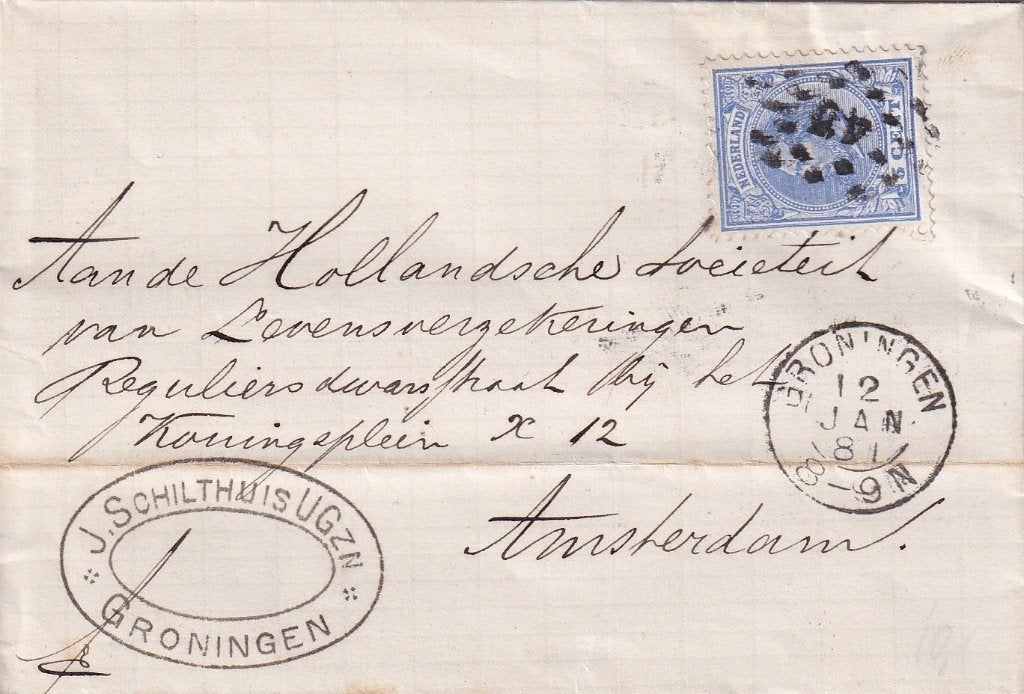 NEDERLAND
5 CENT
45
Aan de Hollandsche Societeit
van Levensverzekeringen
Reguliersdwarsstraat bij het
Koningsplein X 12
Amsterdam.
GRONINGEN
12
JAN
81
8-9N
J. SCHILTHUIS UGZN
GRONINGEN